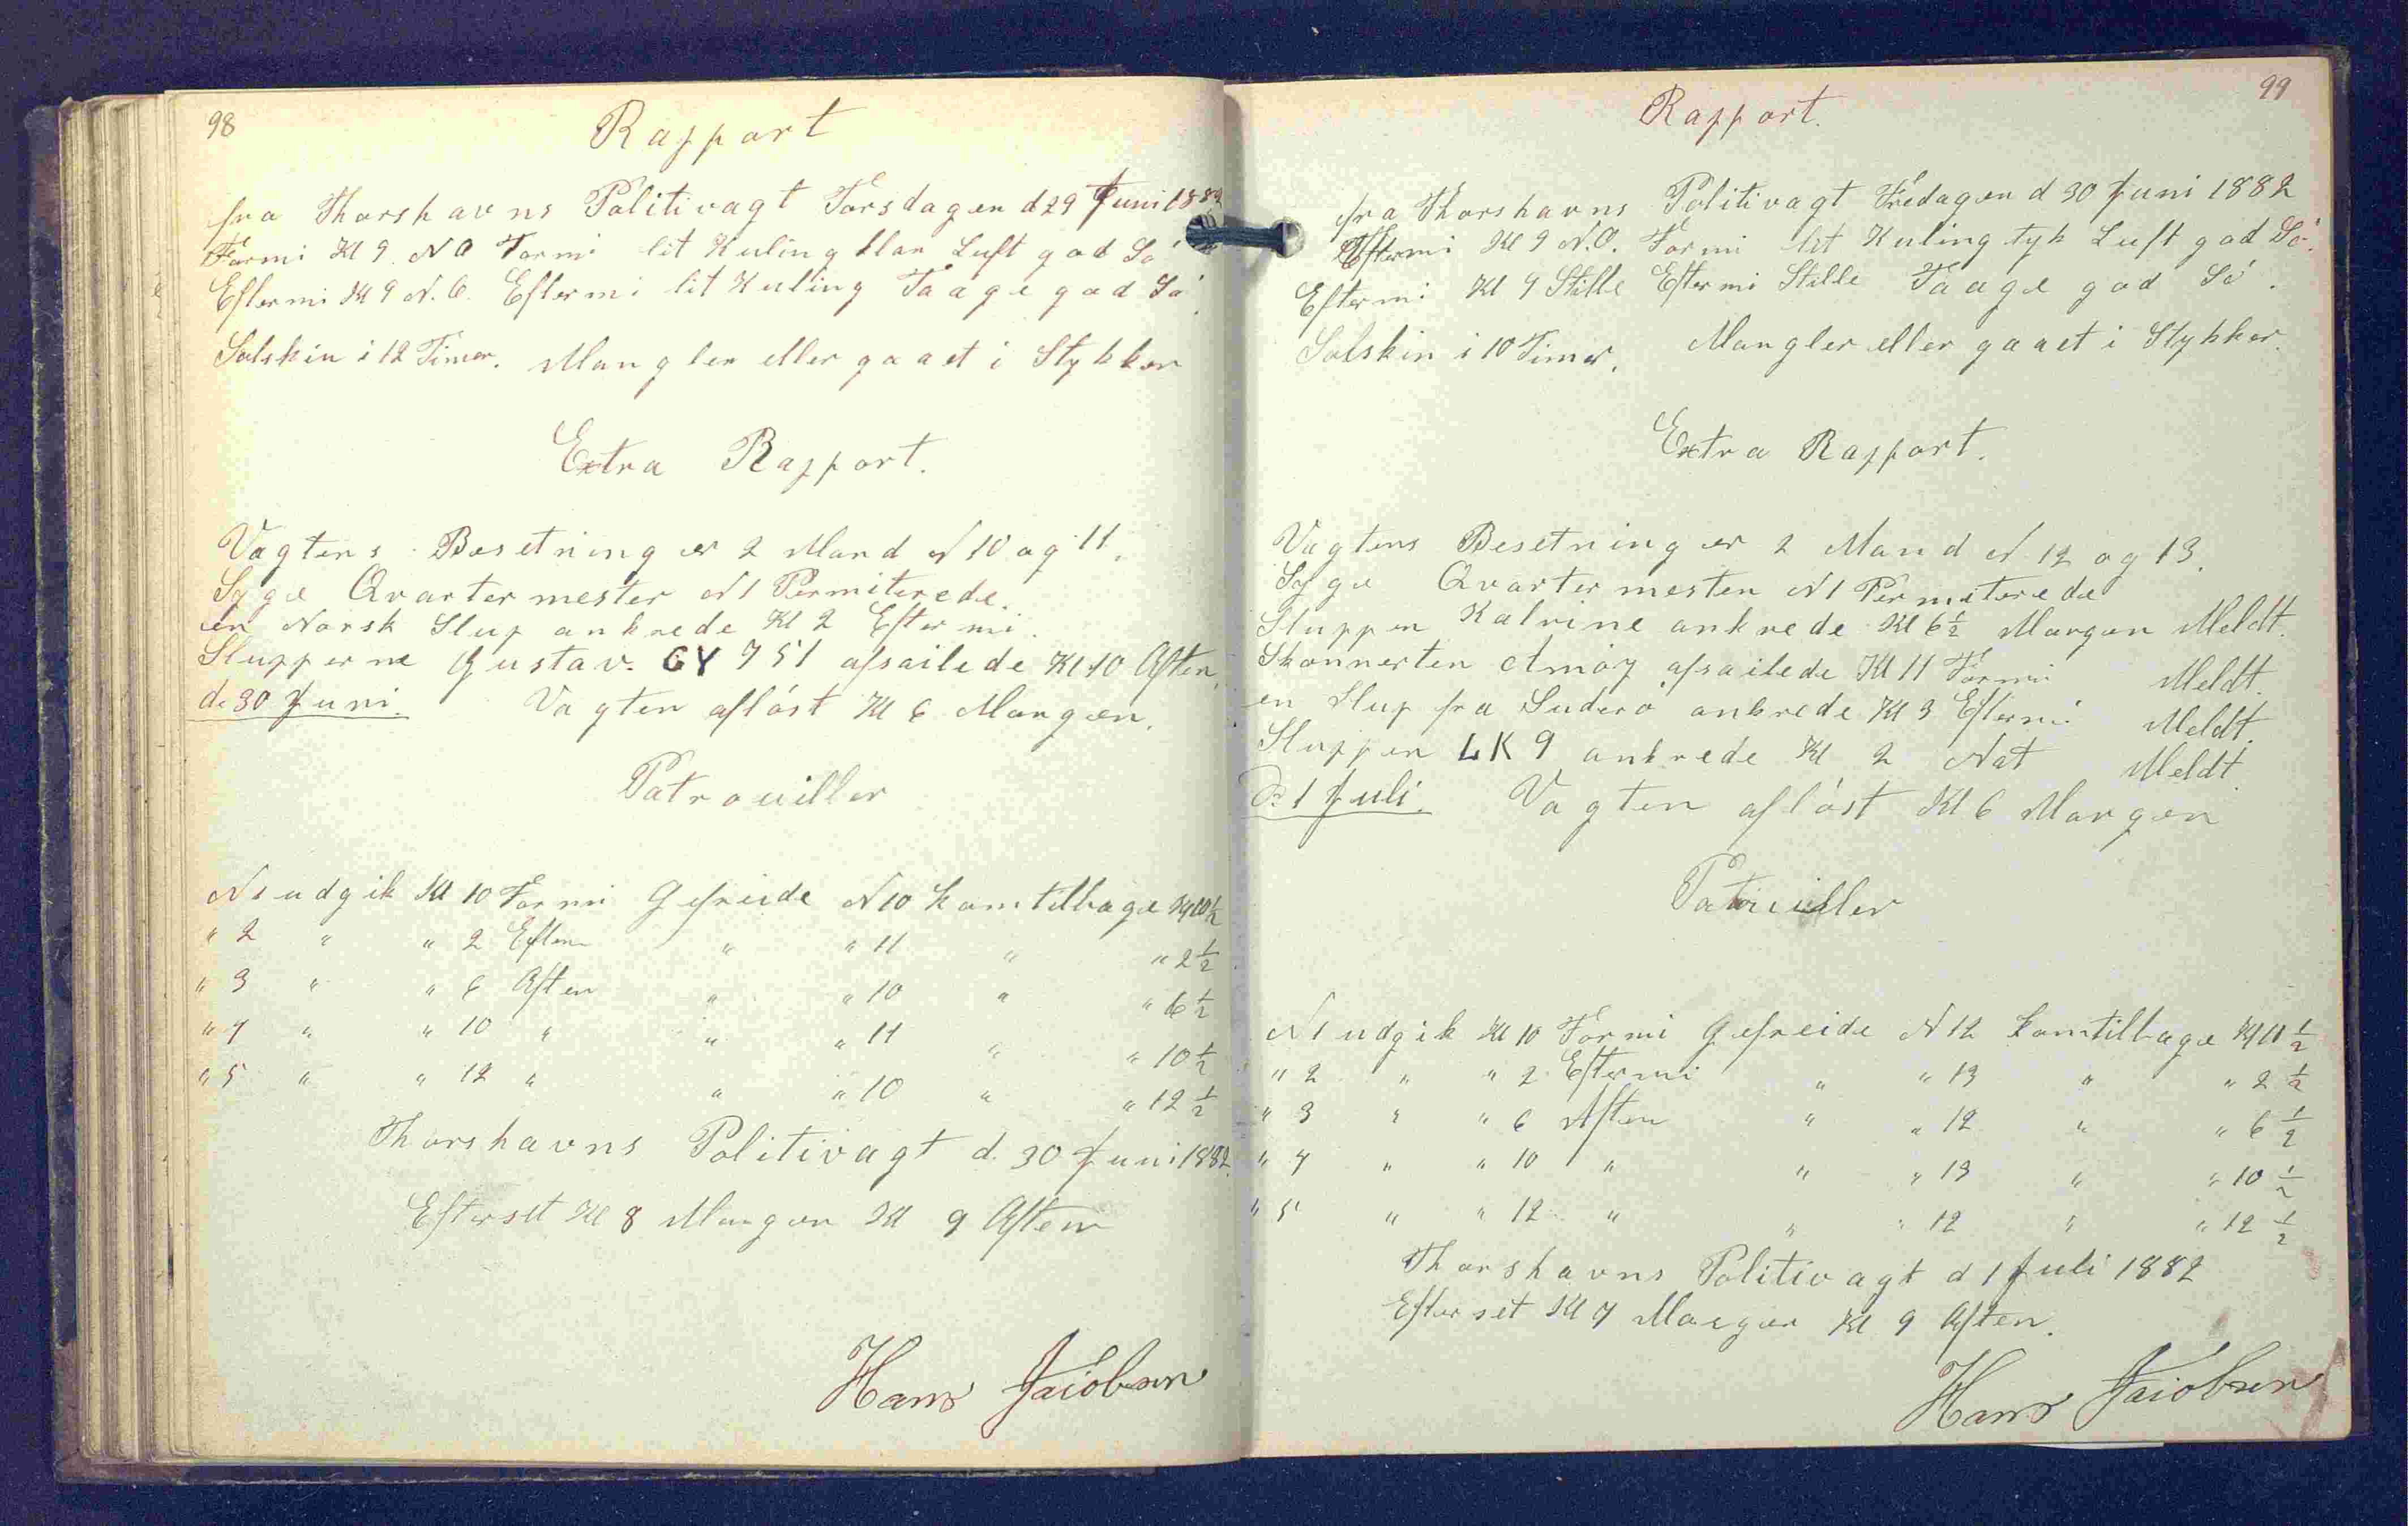 98
Rapport
fra Thorshavns Politivagt Torsdagen d 29 Juni 1882
Formi Kl 9. N O Formi lit Kuling klar Luft god Sö
Eftermi Kl 9 N. O. Eftermi lit Kuling Taage god Sö.
Solskin i 12 Timer. Mangler eller gaaet i Stykker
Extra Rapport.
Vagtens Besetning er 2 Mand N 10 og 11.
Syge Qvartermester N 1 Permiterede.
en Norsk Slup ankrede Kl 2 Eftermi.
Slupperne Gustav. GY 751 afsailede Kl 10 Aften.
d. 30 Juni. Vagten aflöst Kl 6 Morgen.
Patrouiller
N 1 udgik Kl 10 Formi Gefreide N 10 kom tilbage Kl 10½
" 2 " " 2 Efterm " " 11 " " 2½
" 3 " " 6 Aften " " 10 " " 6½
" 4 " " 10 " " " 11 " " 10½
" 5 " " 12 " " " 10 " " 12½
Thorshavns Politivagt d. 30 Juni 1882.
Efterset Kl 8 Morgen Kl 9 Aften
Hans Jacobsen
99
Rapport.
fra Thorshavns Politivagt Fredagen d 30 Juni 1882
Eftermi Kl 9 N.O. Formi lit Kuling tyk Luft god Sö.
Eftermi Kl 9 Stille Eftermi Stille Taage god Sö.
Solskin i 10 Timer. Mangler eller gaaet i Stykker.
Extra Rapport.
Vagtens Besetning er 2 Mand N 12 og 13.
Syge Qvartermesten N 1 Permiterede
Sluppen Katrine ankrede Kl 6½ Morgen Meldt.
Skonnerten Amöy afsailede Kl 11 Formi Meldt.
en Slup fra Suderö ankrede Kl 3 Eftermi Meldt.
Sluppen LK 9 ankrede Kl 2 Nat Meldt.
D. 1 Juli. Vagten aflöst Kl 6 Morgen
Patroiuller
N 1 udgik Kl 10 Formi Gefreide N 12 kom tilbage Kl 11½
" 2 " " 2 Eftermi " " 13 " " 2½
" 3 " " 6 Aften " " 12 " " 6½
" 4 " " 10 " " " 13 " " 10½
" 5 " " 12 " " " 12 " " 12½
Thorshavns Politivagt d 1 Juli 1882
Efterset Kl 7 Morgen Kl 9 Aften.
Hans Jacobsen